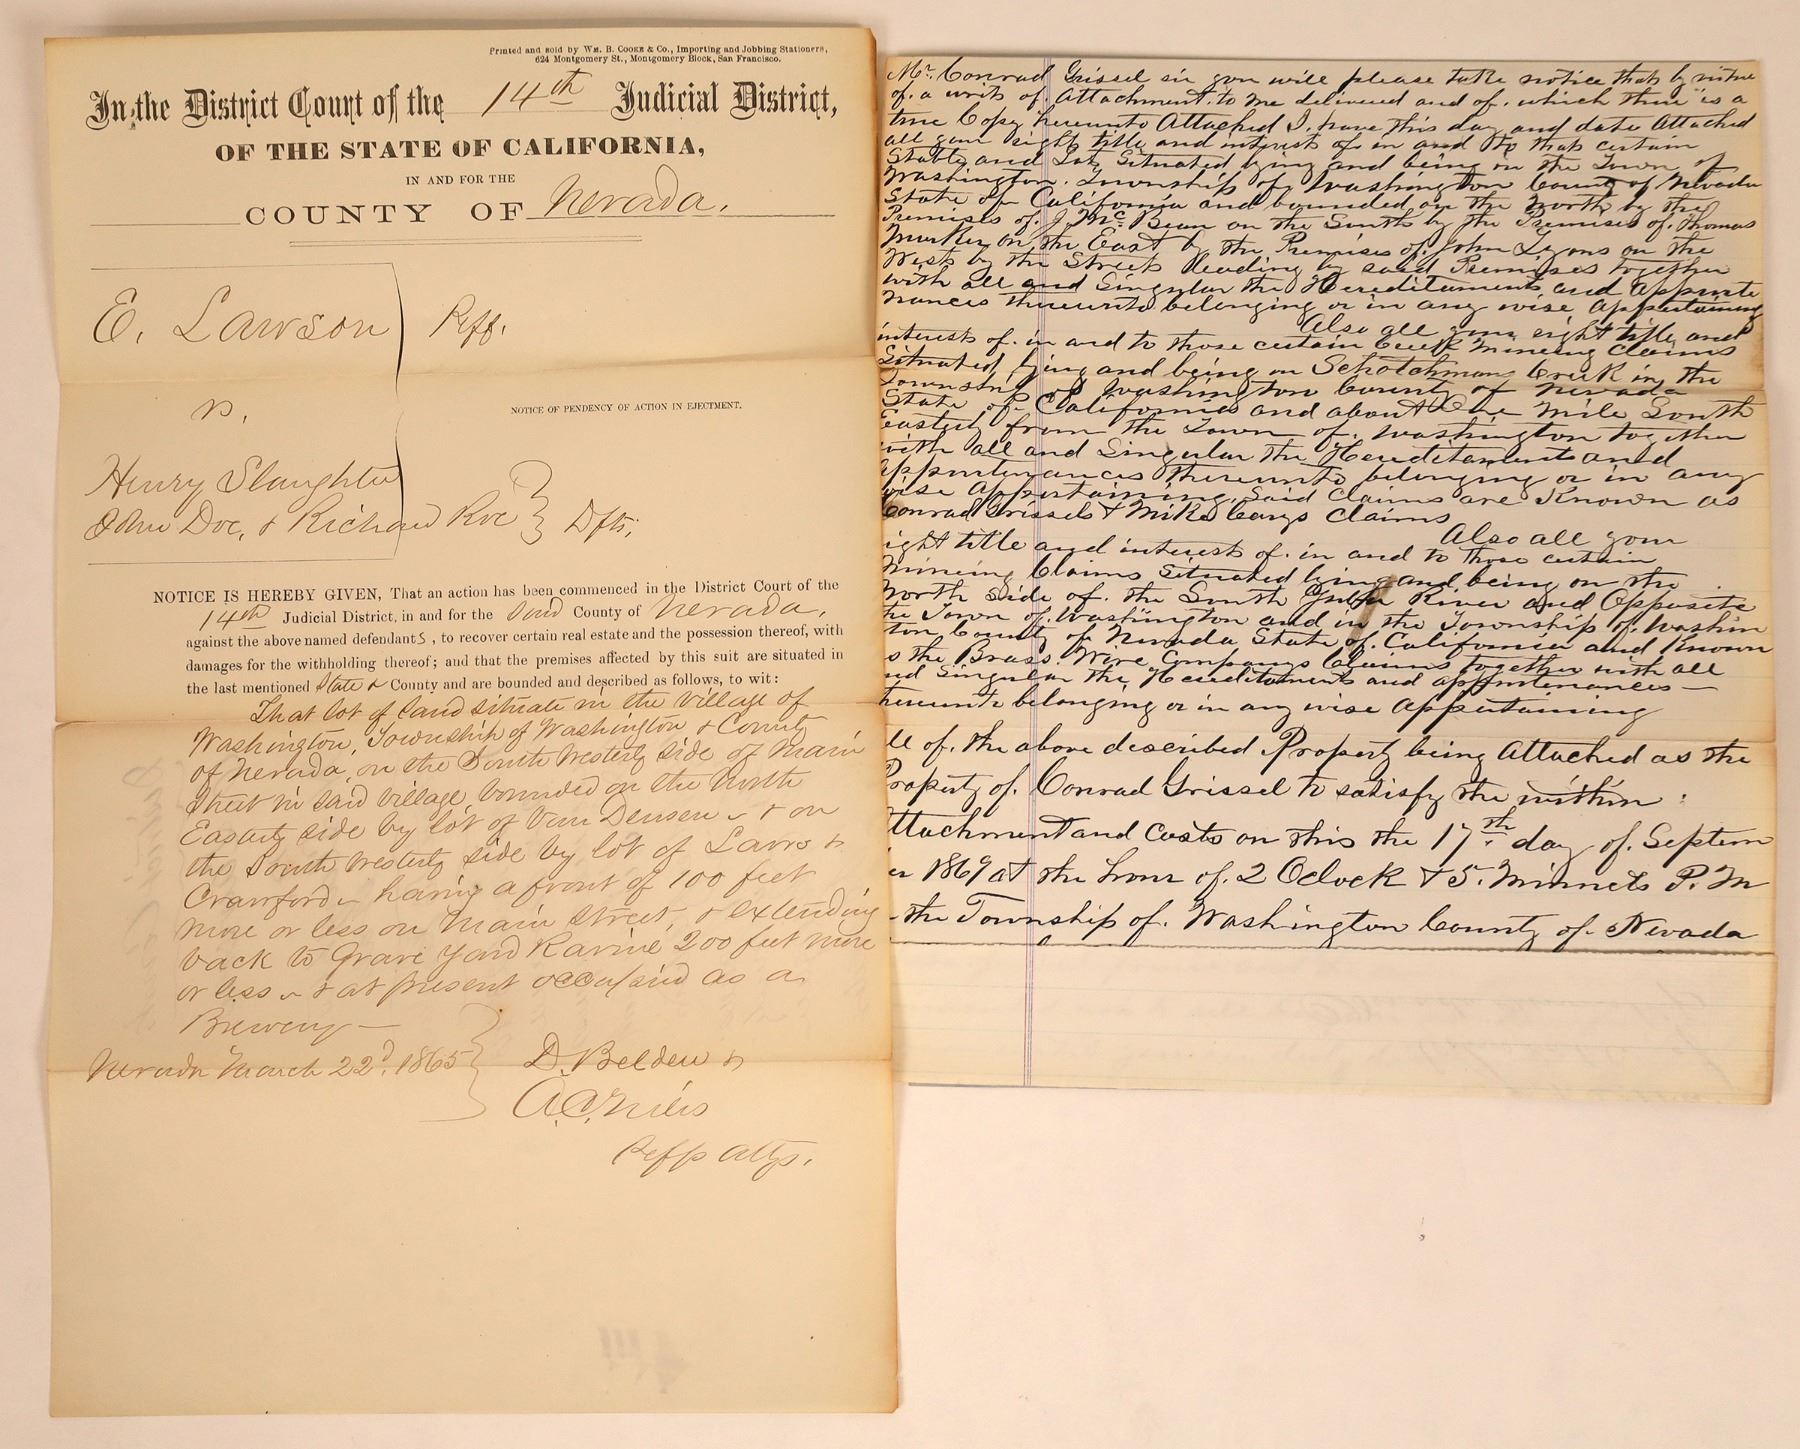 Printed and sold by WM. B. COOKE & Co., Importing and Jobbing Stationers,
624 Montgomery St., Montgomery Block, San Francisco.
In the District Court of the 14th Judicial District,
OF THE STATE OF CALIFORNIA,
IN AND FOR THE
COUNTY OF Nevada.
E. Lawson Plff.
vs.
NOTICE OF PENDENCY OF ACTION IN EJECTMENT.
Henry Slaughter
John Doe, & Richard Roe Dfts;
NOTICE IS HEREBY GIVEN, That an action has been commenced in the District Court of the
14th Judicial District, in and for the Said County of Nevada,
against the above named defendants, to recover certain real estate and the possession thereof, with
damages for the withholding thereof; and that the premises affected by this suit are situated in
the last mentioned State & County and are bounded and described as follows, to wit:
That lot of land situate in the village of
Washington, Township of Washington & County
of Nevada, on the South Westerly side of Main
Street in said village, bounded on the North
Easterly side by lot of Van Deusen & on
the South Westerly side by lot of Laws &
Crawford having a front of 100 feet
more or less on Main Street, & extending
back to Grave Yard Ravine 200 feet more
or less & at present occupied as a
Brewery —
Nevada March 22d. 1865 D. Belden &
A. C. Niles
Plffs Attys.
Mr. Conrad Grissel sir you will please take notice that by virtue
of. a writ of Attachment. to me delivered and of. which there is a
true Copy hereunto Attached I. have this day and date Attached
all your right title and interest of in and to that certain
Stable and Lot Situated lying and being in the Town of
Washington. Township of Washington County of Nevada
State of California and bounded on the North by the
Premises of. J Mc Bean on the South by the Premises of. Thomas
on the East by the Premises of John Lyons on the
West by the Street leading by said Premises together
with all and Singular the Hereditaments and appurte
nances thereunto belonging or in any wise appertaining
Also all your right title and
interest of. in and to those certain Creek Mineing Claims
Situated lying and being on Schotchmans Creek in the
Township of Washington County of Nevada
State of California and about One Mile South
Easterly from the Town of. Washington together
with all and Singular the Hereditaments and
appurtenances thereunto belonging or in any
wise appertaining Said Claims are Known as
Conrad Grissels & Mike Carys Claims
Also all your
ight title and interest of. in and to those certain
Mineing Claims Situated lying and being on the
North side of. the South Yuba River and Opposite
the Town of. Washington and in the Township of. Washin
ton County of Nevada State of. California and Known
s the Brass. Wire Companys Claims together with all
nd Singular the Hereditaments and appurtenances —
hereunto belonging or in any wise Appertaining
ll of. the above described Property being Attached as the
Property of. Conrad Grissel to satisfy the within
ttachment and Costs on this the 17th day of. Septem
er 1867 at the hour of. 2 Oclock & 5. Minnets P. M
the Township of. Washington County of. Nevada